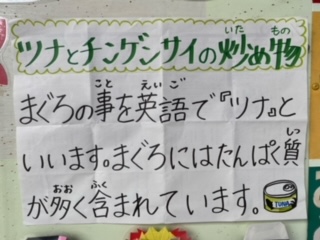 ツナとチンゲンサイの炒め物
まぐろの事を英語で『ツナ』と
いいます。まぐろにはたんぱく質
が多く含まれています。
TUNA